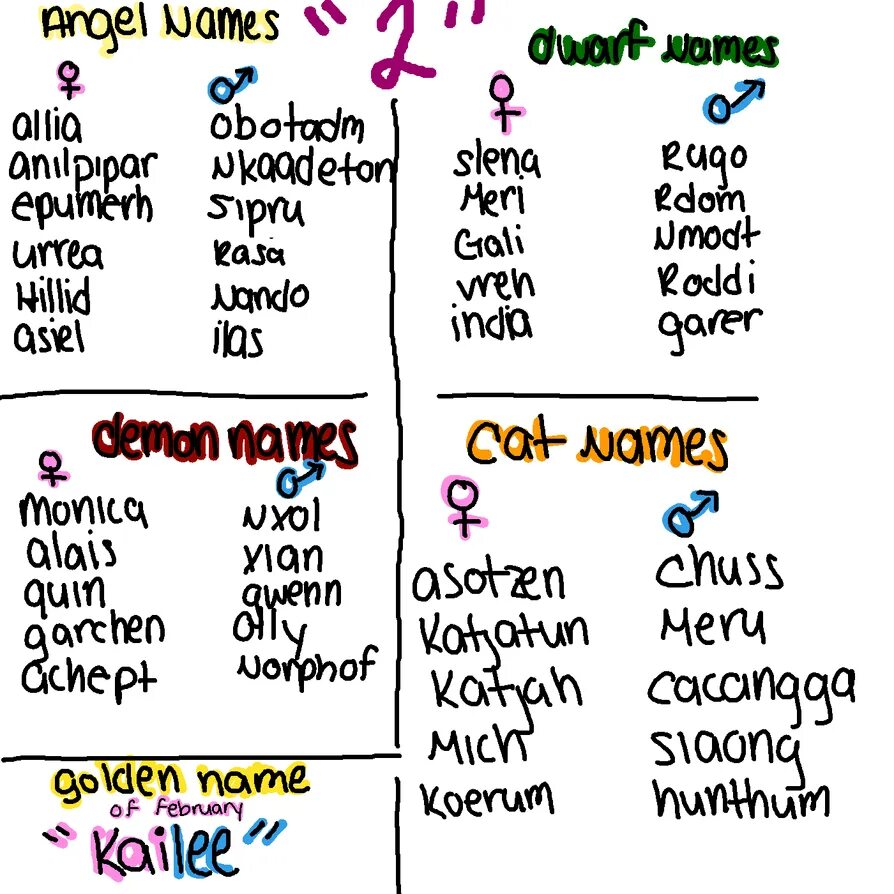 Angel Names
"2"
allia
anilpipar
epumerh
urrea
Hillid
asiel
obotadm
Nkaadeton
sipru
Rasa
Nando
ilas
dwarf Names
slena
Meri
Gali
vreh
india
Rugo
Rdom
Nmodt
Roddi
garer
demon names
monica
alais
quin
garchen
achept
Nxol
xian
qwenn
olly
Norphof
cat Names
asotzen
Katjatun
Katjah
Mich
Koerum
chuss
Meru
cacangga
siaong
hunthum
golden name
of february
"Kailee"